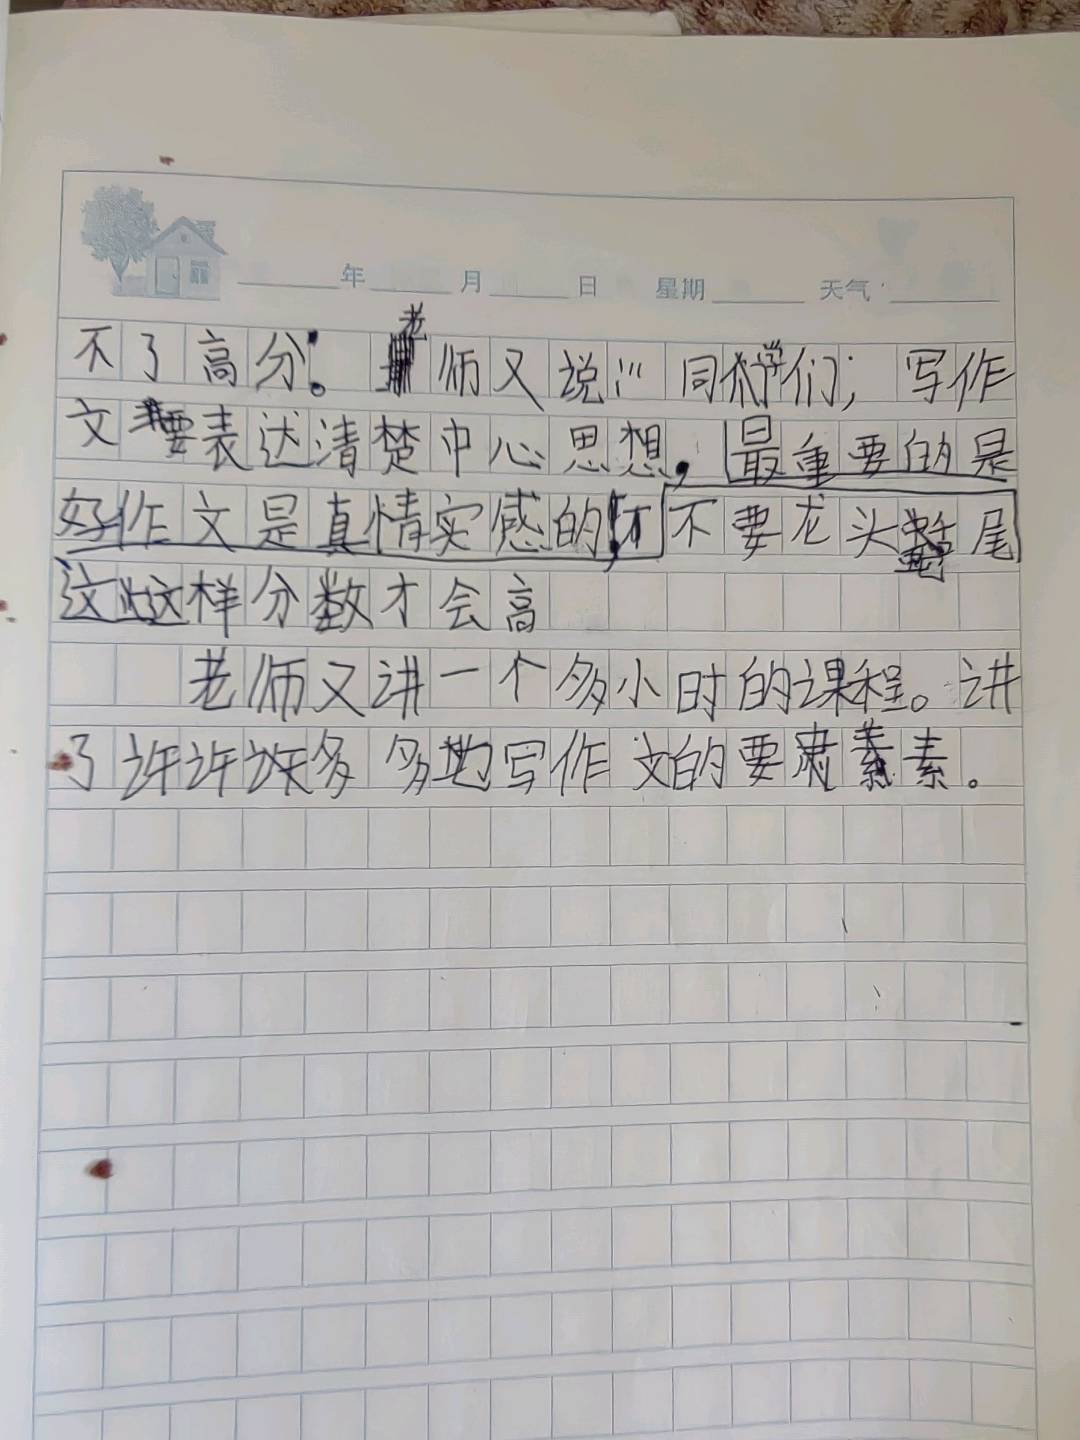 年 月 日 星期 天气
不了高分。老师又说:"同学们,写作
文要表达清楚中心思想,最重要的是
好作文是真情实感的,不要龙头 尾
这 这样分数才会高
老师又讲一个多小时的课程。讲
了许许 多多地写作文的要 素。